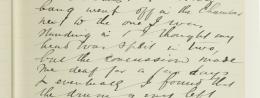 bang went off in the chamber
next to the one I was
standing in & I thought my
head was split in two,
but the concussion made
me deaf for a few days
& eventually I found that
the drum of ear left